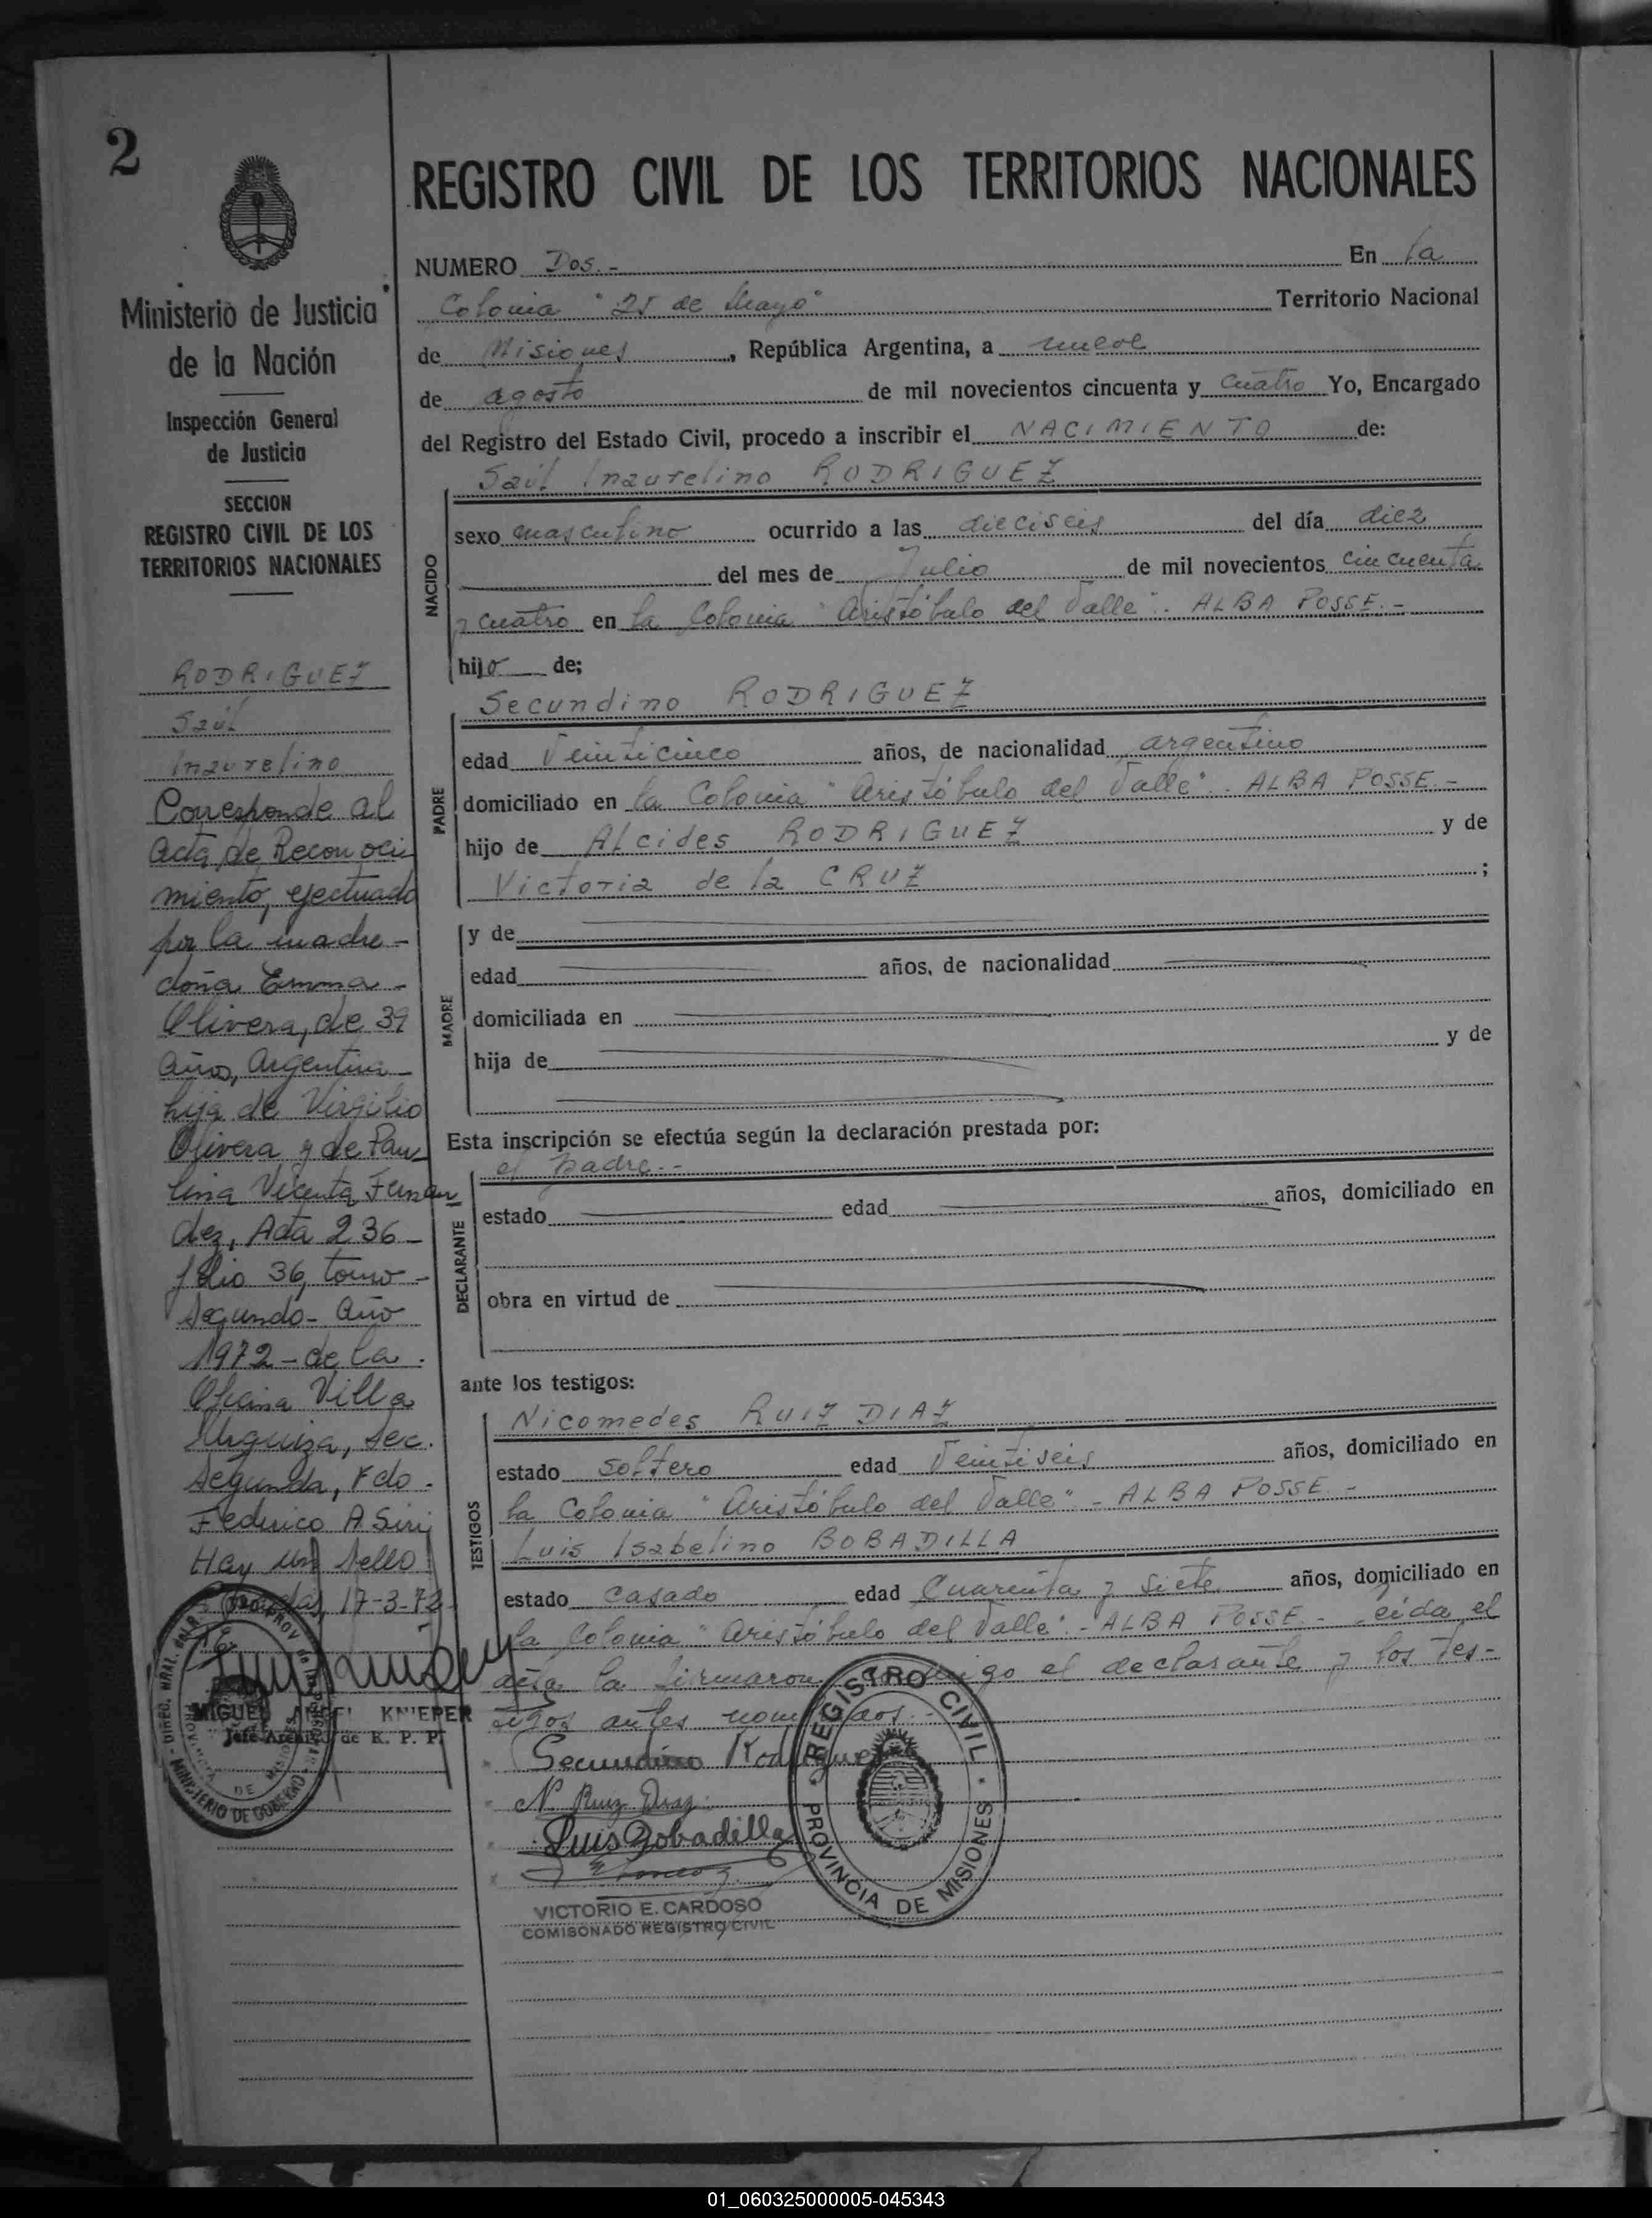 2
REGISTRO CIVIL DE LOS TERRITORIOS NACIONALES
Ministerio de Justicia
de la Nación
Inspección General
de Justicia
SECCION
REGISTRO CIVIL DE LOS
TERRITORIOS NACIONALES
RODRIGUEZ
Saúl
Inaurelino
Corresponde al
Acta de Reconoci
miento, efectuado
por la madre -
doña Emma -
Olivera, de 39
años, Argentina -
hija de Virgilio
Olivera y de Pau_
lina Vicenta Fernán
dez, Acta 236 -
folio 36, tomo -
segundo - año
1972 - de la
Oficina Villa
Urquiza, Sec.
Segunda, Fdo.
Federico A Siri
Hay un sello
17-3-72
MIGUEL ANGEL KNIEPER
Jefe Archivo de R. P. P.
MINISTERIO DE GOBIERNO
NUMERO Dos.- En la
Colonia "25 de Mayo" Territorio Nacional
de Misiones, República Argentina, a nueve
de agosto de mil novecientos cincuenta y cuatro Yo, Encargado
del Registro del Estado Civil, procedo a inscribir el NACIMIENTO de:
Saúl Inaurelino RODRIGUEZ
NACIDO
sexo masculino ocurrido a las dieciseis del día diez
del mes de Julio de mil novecientos cincuenta
y cuatro en la Colonia "Aristóbulo del Valle".- ALBA POSSE.-
hijo de;
Secundino RODRIGUEZ
PADRE
edad Veinticinco años, de nacionalidad argentino
domiciliado en la Colonia "Aristóbulo del Valle".- ALBA POSSE.-
hijo de Alcides RODRIGUEZ y de
Victoria de la CRUZ ;
MADRE
y de
edad años, de nacionalidad
domiciliada en
hija de y de
Esta inscripción se efectúa según la declaración prestada por:
el padre.-
DECLARANTE
estado edad años, domiciliado en
obra en virtud de
ante los testigos:
TESTIGOS
Nicomedes RUIZ DIAZ
estado soltero edad Veintiseis años, domiciliado en
la Colonia "Aristóbulo del Valle" - ALBA POSSE -
Luis Isabelino BOBADILLA
estado casado edad Cuarenta y siete años, domiciliado en
la Colonia "Aristóbulo del Valle".- ALBA POSSE - Leida el
acta la firmaron conmigo el declarante y los tes-
tigos antes nombrados.-
Secundino Rodriguez
N. Ruiz Diaz
Luis Bobadilla
VICTORIO E. CARDOSO
COMISONADO REGISTRO CIVIL
REGISTRO CIVIL
PROVINCIA DE MISIONES
01_060325000005-045343